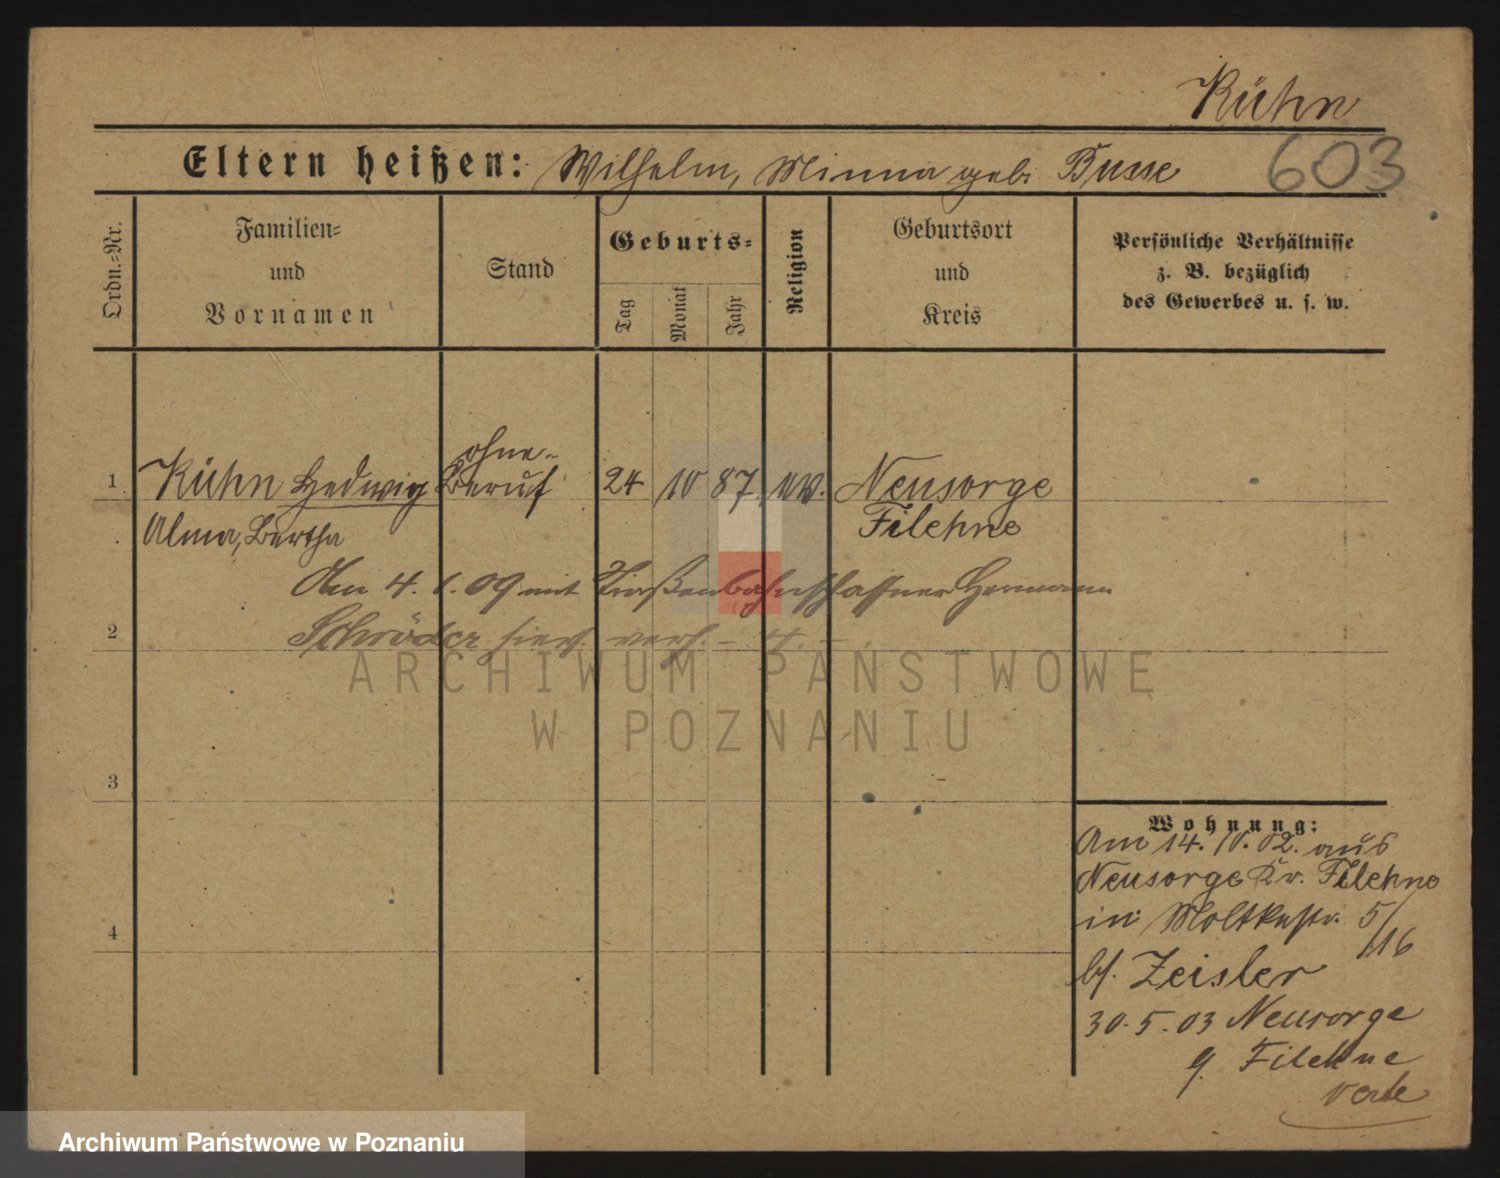 Kühn
603
Eltern heißen: Wilhelm, Minna geb. Busse
Ordn.-Nr.
Familien-
und
Vornamen
Stand
Geburts-
Tag
Monat
Jahr
Religion
Geburtsort
und
Kreis
Persönliche Verhältnisse
z. B. bezüglich
des Gewerbes u. s. w.
1
Kühn Hedwig
Alma, Bertha
ohne
Beruf
24 10 87 ev.
Neusorge
Filehne
Am 4. 1. 09 mit Straßenbahnschaffner Hermann
2
Schröder hier verh.
ARCHIWUM PAŃSTWOWE
W POZNANIU
3
4
Wohnung:
Am 14. 10. 02. aus
Neusorge Kr. Filehne
in Moltkestr. 5/
16
bf. Zeisler
30.5.03 Neusorge
Filehne
verte
Archiwum Państwowe w Poznaniu